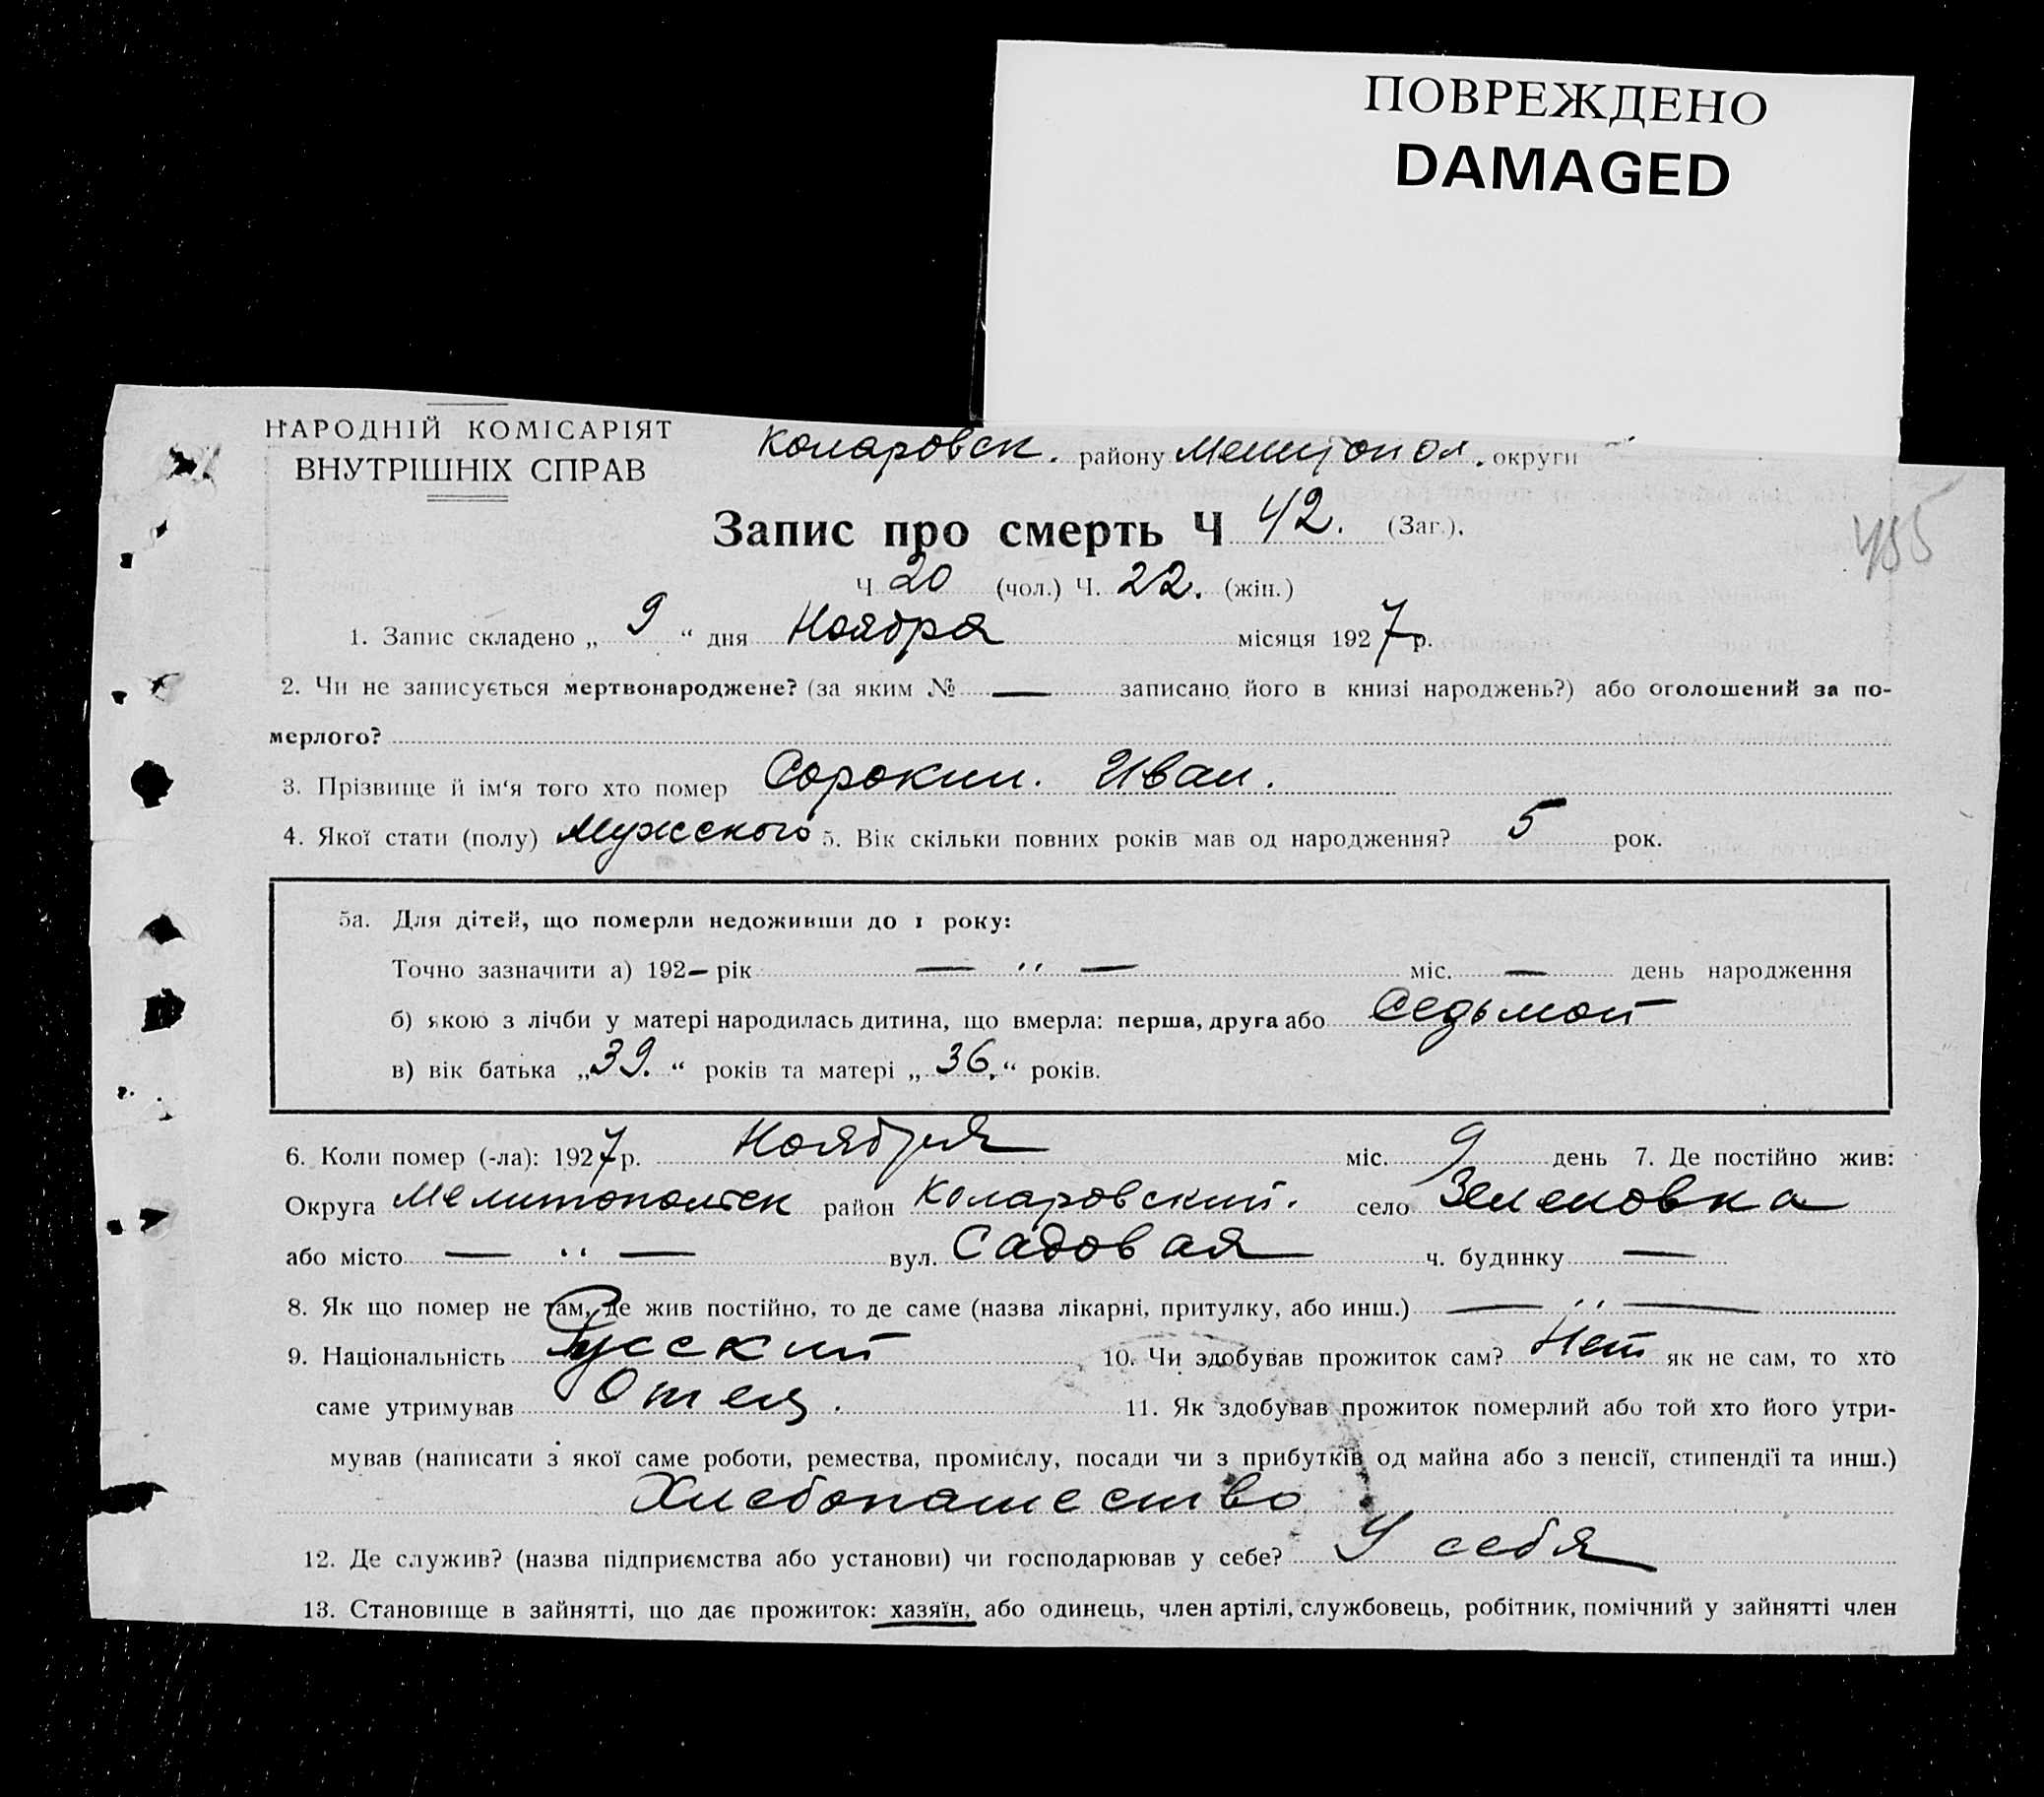 ПОВРЕЖДЕНО
DAMAGED
НАРОДНІЙ КОМІСАРІЯТ
ВНУТРІШНІХ СПРАВ
Коларовск. району Мелитопол. округи
Запис про смерть Ч 42. (Заг.).
455
Ч 20 (чол.) Ч. 22. (жін.)
1. Запис складено „ 9 “ дня Ноября місяця 1927 р.
2. Чи не записується мертвонароджене? (за яким № — записано його в книзі народжень?) або оголошений за по-
мерлого?
3. Прізвище й ім‘я того хто помер Сорокин. Иван.
4. Якої стати (полу) Мужского 5. Вік скільки повних років мав од народження? 5 рок.
5а. Для дітей, що померли недоживши до 1 року:
Точно зазначити а) 192— рік — ״ — міс. — день народження
б) якою з лічби у матері народилась дитина, що вмерла: перша, друга або Седьмой
в) вік батька „39.“ років та матері „36.“ років.
6. Коли помер (-ла): 1927 р. Ноября міс. 9 день 7. Де постійно жив:
Округа Мелитопольск район Коларовский. село Зеленовка
або місто — ״ — вул. Садовая ч. будинку —
8. Як що помер не там, де жив постійно, то де саме (назва лікарні, притулку, або инш.) — ״ —
9. Національність Русский 10. Чи здобував прожиток сам? Нет як не сам, то хто
саме утримував Отец. 11. Як здобував прожиток померлий або той хто його утри-
мував (написати з якої саме роботи, ремества, промислу, посади чи з прибутків од майна або з пенсії, стипендії та инш.)
Хлебопашество
12. Де служив? (назва підприємства або установи) чи господарював у себе? У себя
13. Становище в зайнятті, що дає прожиток: хазяїн, або одинець, член артілі, службовець, робітник, помічний у зайнятті член